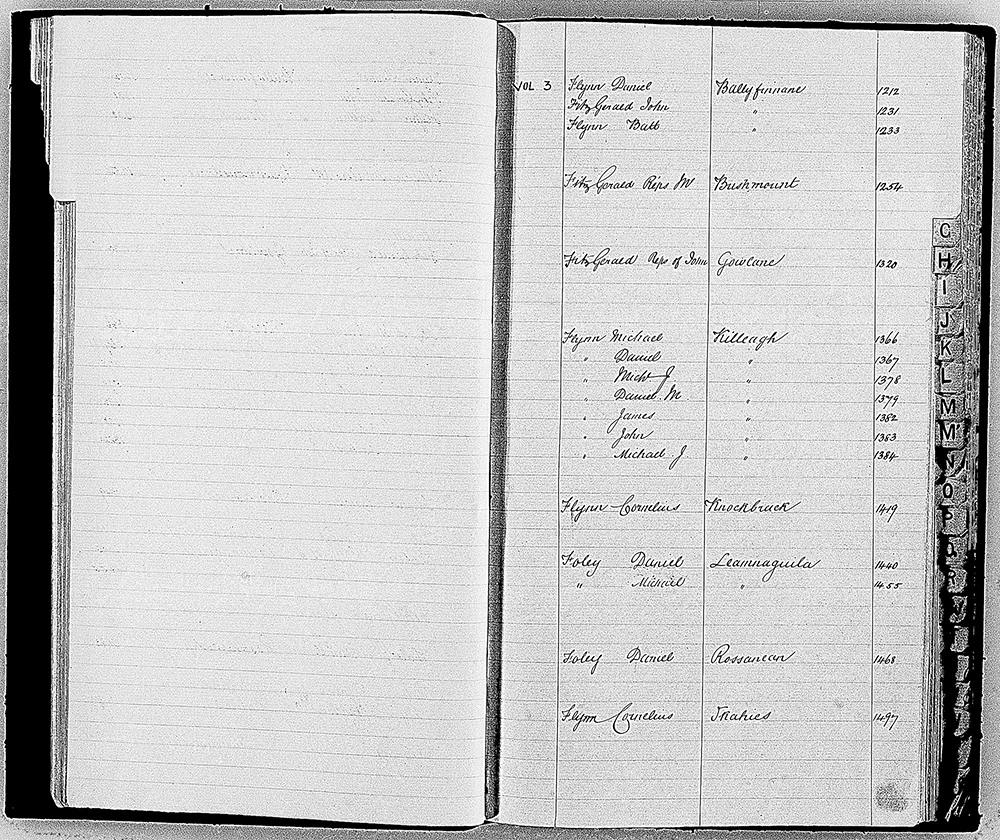 VOL 3 Flynn Daniel Ballyfinnane 1212
FitzGerald John " 1231
Flynn Batt " 1233
FitzGerald Reps M Bushmount 1254
FitzGerald Reps of John Gowlane 1320
Flynn Michael Killeagh 1366
" Daniel " 1367
" Michl J " 1378
" Daniel M " 1379
" James " 1382
" John " 1383
" Michael J " 1384
Flynn Cornelius Knockbrack 1419
Foley Daniel Leamnaguila 1440
" Michael " 1455
Foley Daniel Rossanean 1468
Flynn Cornelius 1497
C
H
I
J
K
L
M
Mc
N
O
P
R